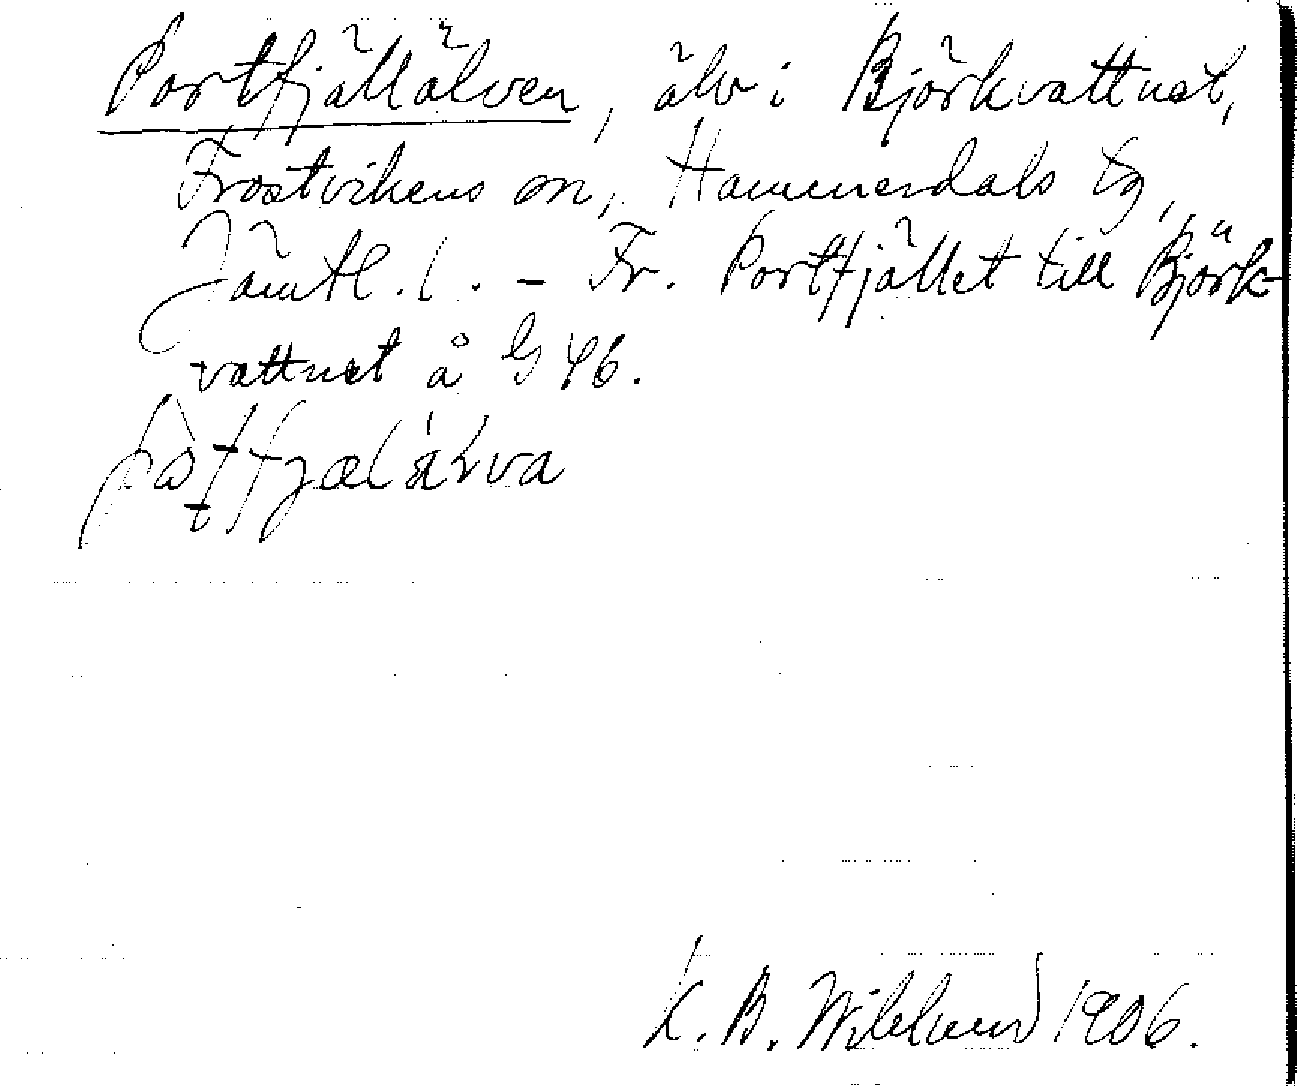 Portfjällälven, älv i Björkvattnet,
Frostvikens sn, Hammerdals tg,
Jämtl. l. - Fr. Portfjället till Björk-
vattnet å G 46.
K. B. Wiklund 1906.